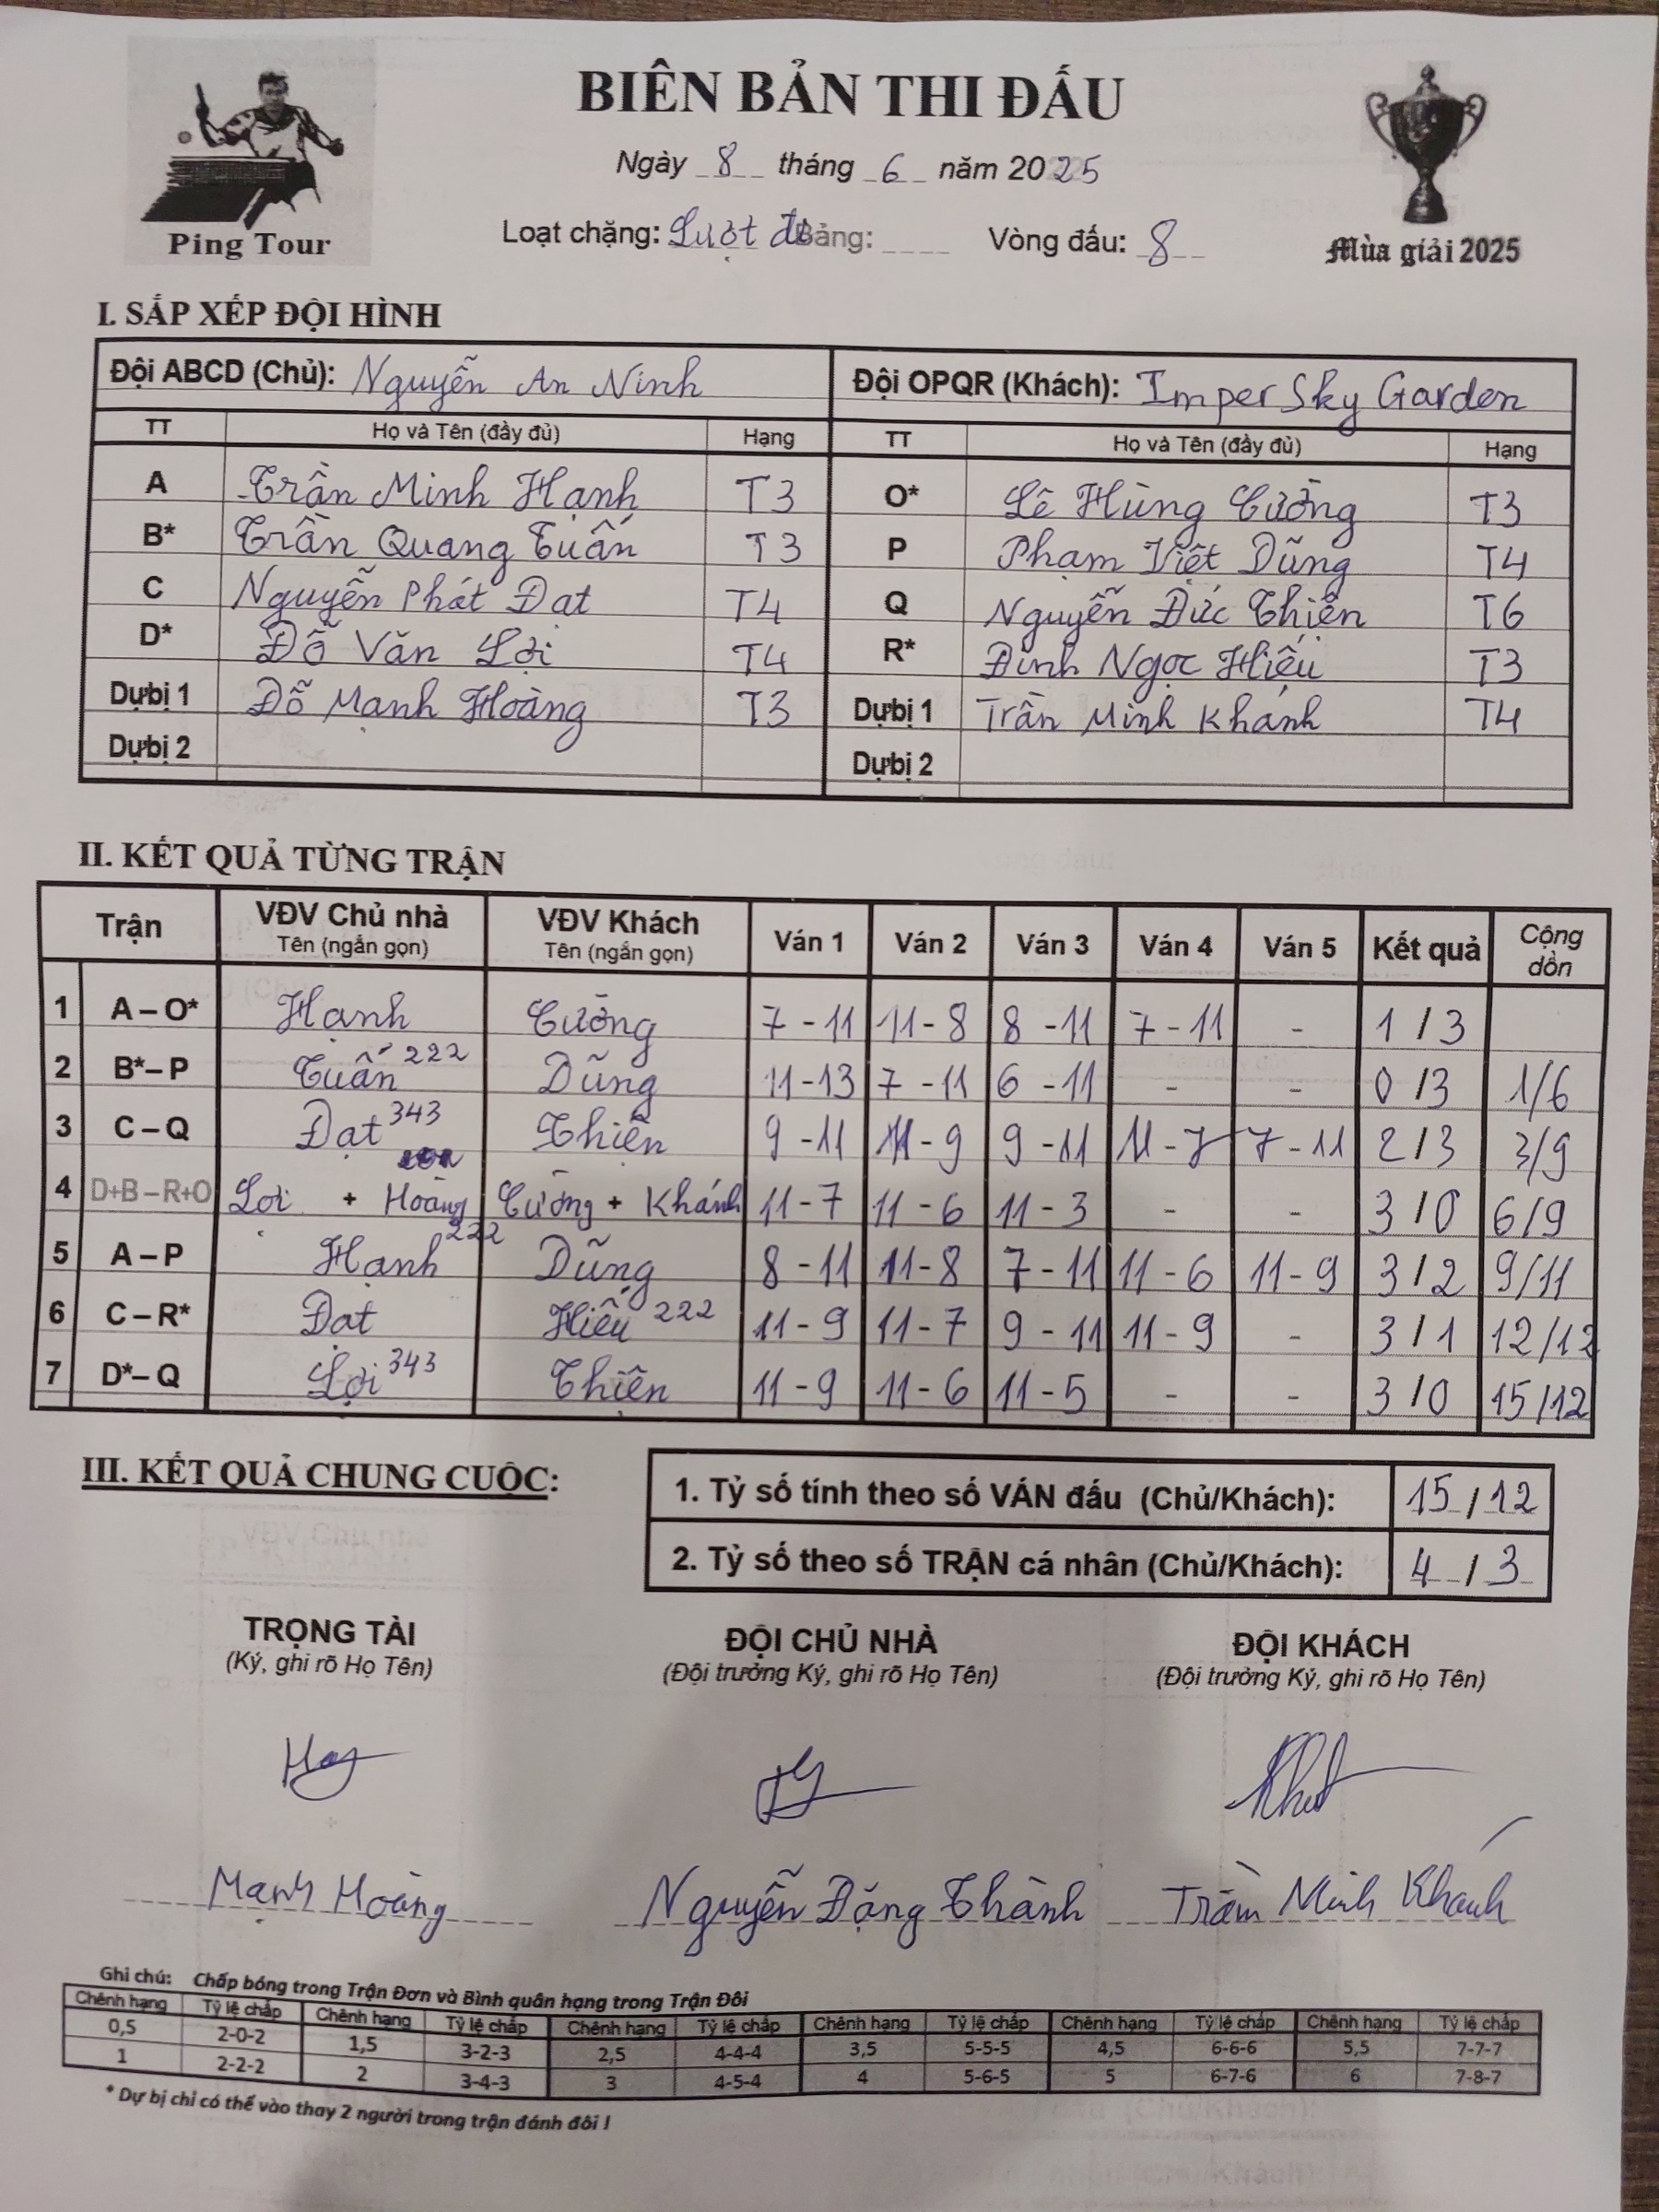 BIÊN BẢN THI ĐẤU
Ngày 8 tháng 6 năm 2025
Loạt chặng: Lượt đi Bảng: Vòng đấu: 8
Ping Tour
Mùa giải 2025
I. SẮP XẾP ĐỘI HÌNH
Đội ABCD (Chủ): Nguyễn An Ninh Đội OPQR (Khách): Imper Sky Garden
TT Họ và Tên (đầy đủ) Hạng TT Họ và Tên (đầy đủ) Hạng
A Trần Minh Hạnh T3 O* Lê Hùng Cường T3
B* Trần Quang Tuấn T3 P Phạm Việt Dũng T4
C Nguyễn Phát Đạt T4 Q Nguyễn Đức Thiện T6
D* Đỗ Văn Lợi T4 R* Đinh Ngọc Hiếu T3
Dự bị 1 Đỗ Mạnh Hoàng T3 Dự bị 1 Trần Minh Khánh T4
Dự bị 2 Dự bị 2
II. KẾT QUẢ TỪNG TRẬN
Trận VĐV Chủ nhà VĐV Khách Ván 1 Ván 2 Ván 3 Ván 4 Ván 5 Kết quả Cộng dồn
Tên (ngắn gọn) Tên (ngắn gọn)
1 A – O* Hạnh Cường 7 - 11 11 - 8 8 - 11 7 - 11 - 1 / 3
2 B* – P Tuấn 222 Dũng 11 - 13 7 - 11 6 - 11 - - 0 / 3 1/6
3 C – Q Đạt 343 Thiện 9 - 11 11 - 9 9 - 11 11 - 7 7 - 11 2 / 3 3/9
4 D+B – R+O Lợi + Hoàng Cường + Khánh 11 - 7 11 - 6 11 - 3 - - 3 / 0 6/9
5 A – P Hạnh 222 Dũng 8 - 11 11 - 8 7 - 11 11 - 6 11 - 9 3 / 2 9/11
6 C – R* Đạt Hiếu 222 11 - 9 11 - 7 9 - 11 11 - 9 - 3 / 1 12/12
7 D* – Q Lợi 343 Thiện 11 - 9 11 - 6 11 - 5 - - 3 / 0 15/12
III. KẾT QUẢ CHUNG CUỘC:
1. Tỷ số tính theo số VÁN đấu (Chủ/Khách): 15 / 12
2. Tỷ số theo số TRẬN cá nhân (Chủ/Khách): 4 / 3
TRỌNG TÀI ĐỘI CHỦ NHÀ ĐỘI KHÁCH
(Ký, ghi rõ Họ Tên) (Đội trưởng Ký, ghi rõ Họ Tên) (Đội trưởng Ký, ghi rõ Họ Tên)
Mạnh Hoàng Nguyễn Đặng Thành Trần Minh Khánh
Ghi chú: Chấp bóng trong Trận Đơn và Bình quân hạng trong Trận Đôi
Chênh hạng Tỷ lệ chấp Chênh hạng Tỷ lệ chấp Chênh hạng Tỷ lệ chấp Chênh hạng Tỷ lệ chấp Chênh hạng Tỷ lệ chấp Chênh hạng Tỷ lệ chấp
0,5 2-0-2 1,5 3-2-3 2,5 4-4-4 3,5 5-5-5 4,5 6-6-6 5,5 7-7-7
1 2-2-2 2 3-4-3 3 4-5-4 4 5-6-5 5 6-7-6 6 7-8-7
* Dự bị chỉ có thể vào thay 2 người trong trận đánh đôi !